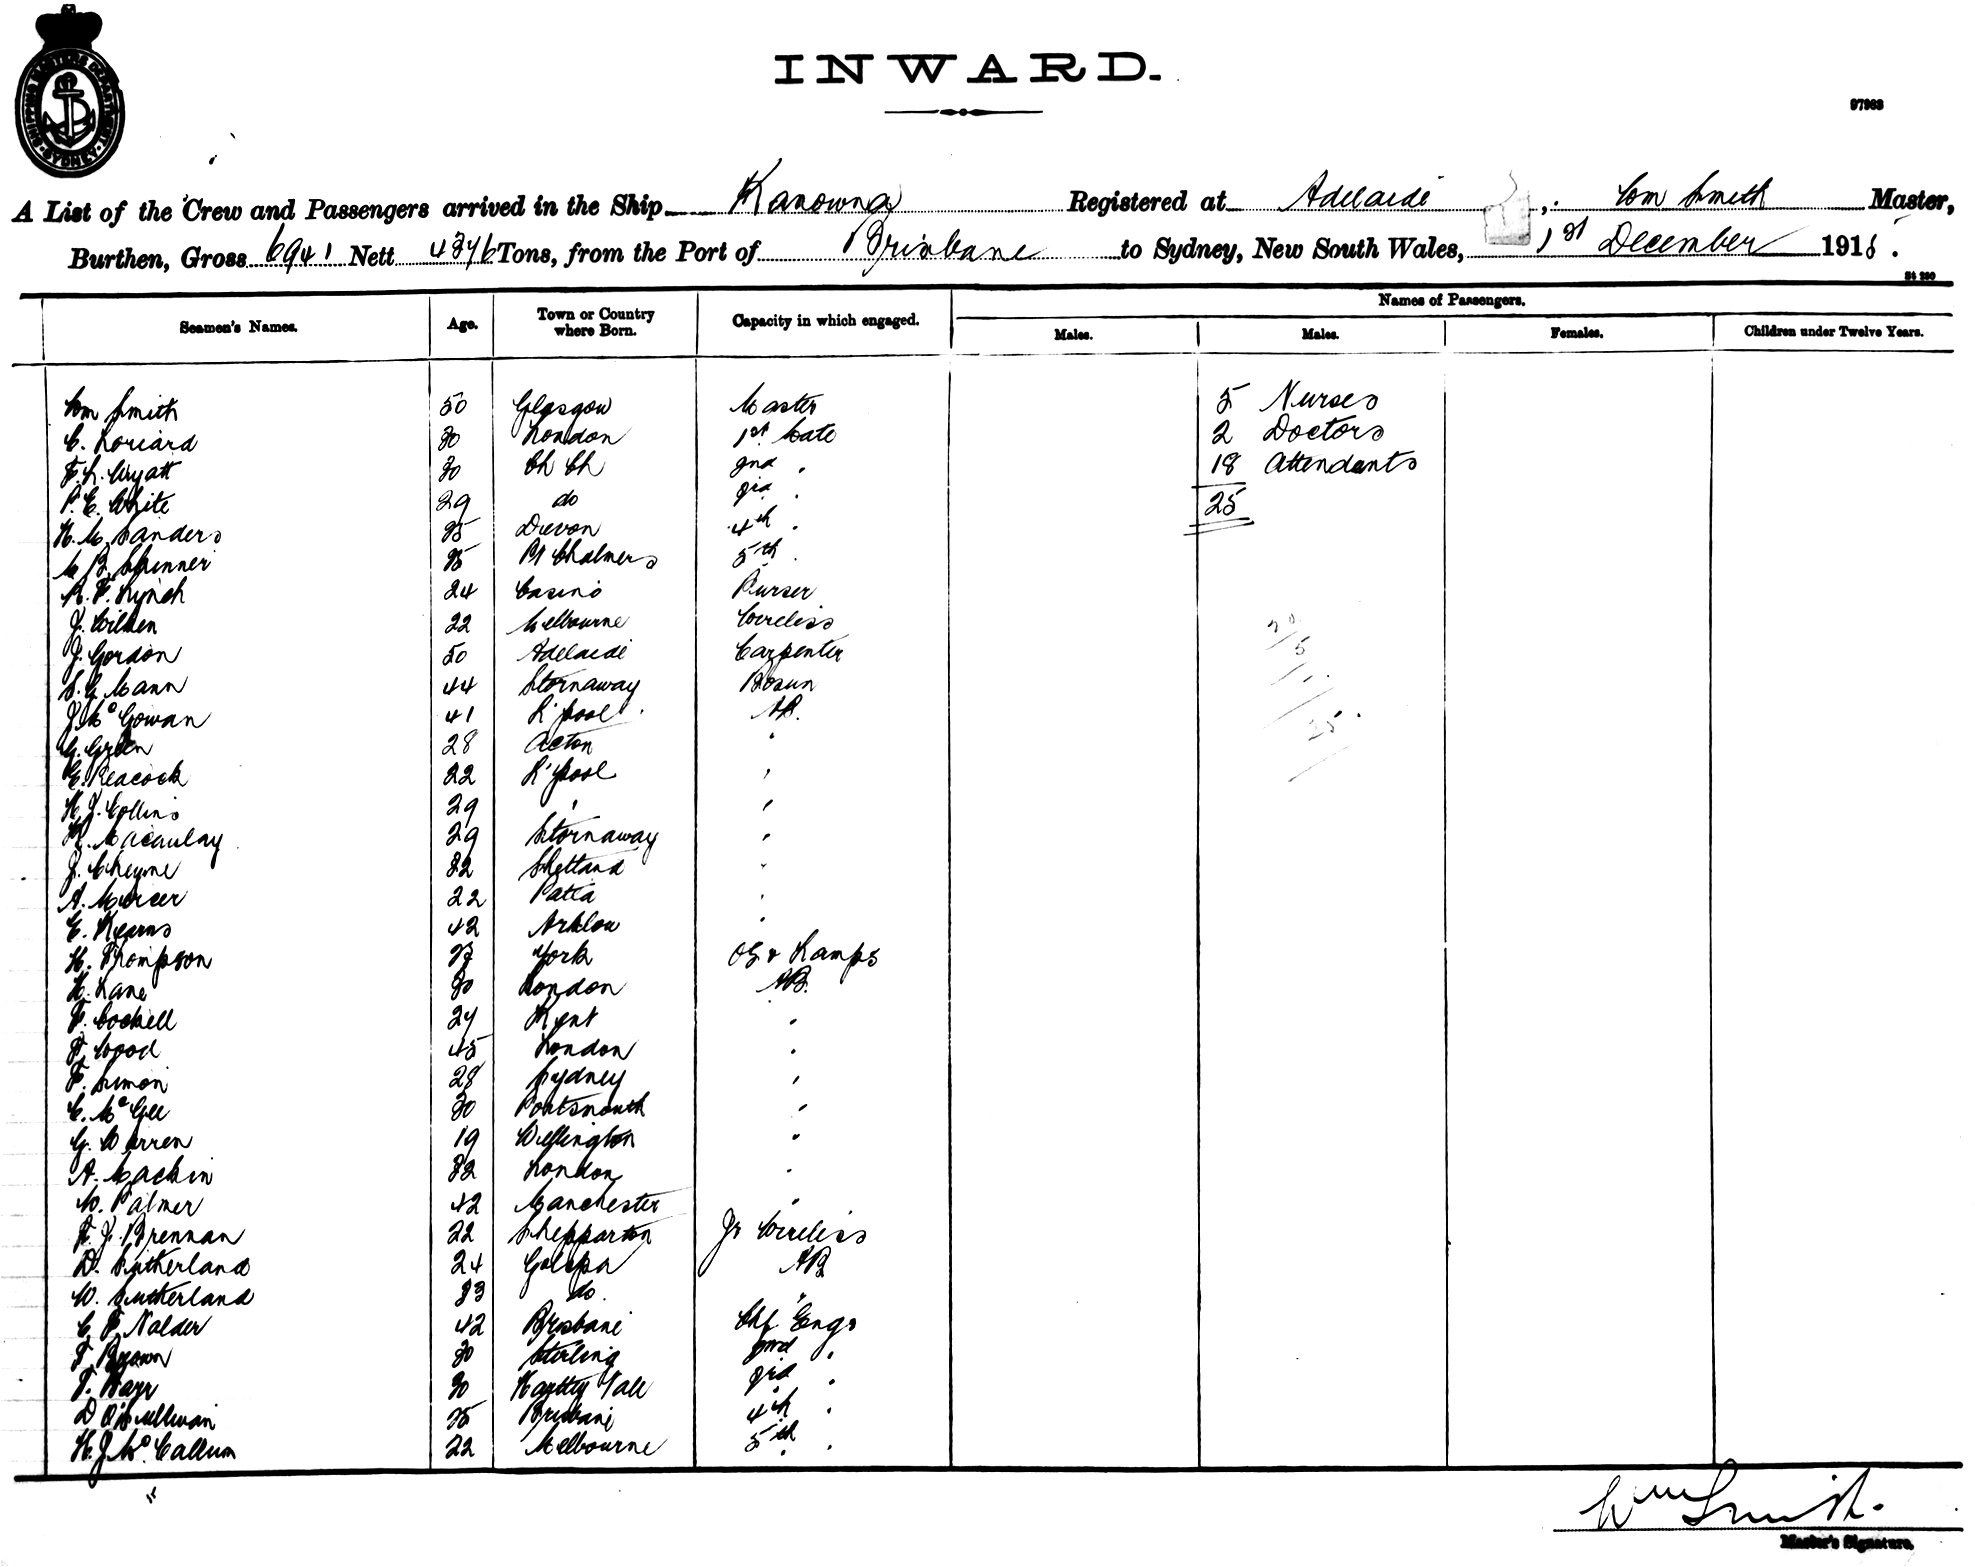 SHIPPING MASTER'S DEPARTMENT SYDNEY
INWARD.
97963
A List of the Crew and Passengers arrived in the Ship Kanowna Registered at Adelaide, Wm Smith Master,
Burthen, Gross 6941 Nett Tons, from the Port of Brisbane to Sydney, New South Wales, 1st December 1915.
Names of Passengers.
Seamen's Names. Age. Town or Country where Born. Capacity in which engaged. Males. Males. Females. Children under Twelve Years.
Wm Smith 50 Glasgow Master 5 Nurses
C. Loriard 30 London 1st Mate 2 Doctors
F. L. Wyatt 30 Ch Ch 2nd " 18 Attendants
P. E. White 29 do 3rd " 25
H. M. Sanders Devon 4th "
M B. Skinner Pt Chalmers 5th "
R. F. Lynch 24 Casino Purser
J. Wilken 22 Melbourne Wireless
J. Gordon 50 Adelaide Carpenter
S. G. Mann 44 Stornaway Bosun
J. McGowan 41 L'pool AB.
G. Green 28 Acton "
E. Peacock 22 L'pool "
H. J. Collins 29 " "
Macaulay 29 Stornaway "
J. Cheyne 32 Shetland "
A. Mercer 22 "
E. Kearns 42 Arklow "
H. Thompson York & Lamps
H. Lane 30 London AB.
F. Cockell 24 Kent "
F. Wood 45 London "
F. Simon 28 Sydney "
C. McGee 30 Portsmouth "
G. Warren 19 Wellington "
A. Mackin 32 London "
W. Palmer 42 Manchester "
F. J. Brennan 22 Shepparton Jr Wireless
D. Sutherland 24 Golspa AB
W. Sutherland 33 do. "
C. F. Nalder 42 Brisbane Chf Engr
F. Brown 30 Sterling 2nd "
F. 30 Vale 3rd "
D O'Sullivan 25 Brisbane 4th "
H. J. McCallum 22 Melbourne 5th "
Wm Smith.
Master's Signature.